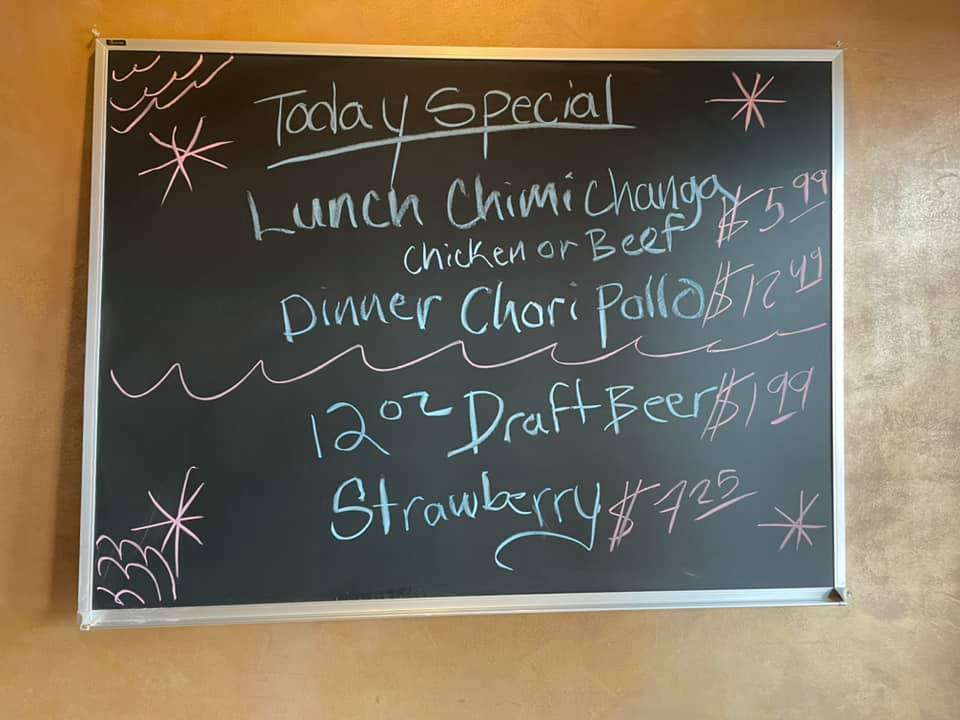 Today Special
Lunch Chimichanga $5.99
Chicken or Beef
Dinner Chori Pollo $12.49
12 oz Draft Beer $1.99
Strawberry $7.25